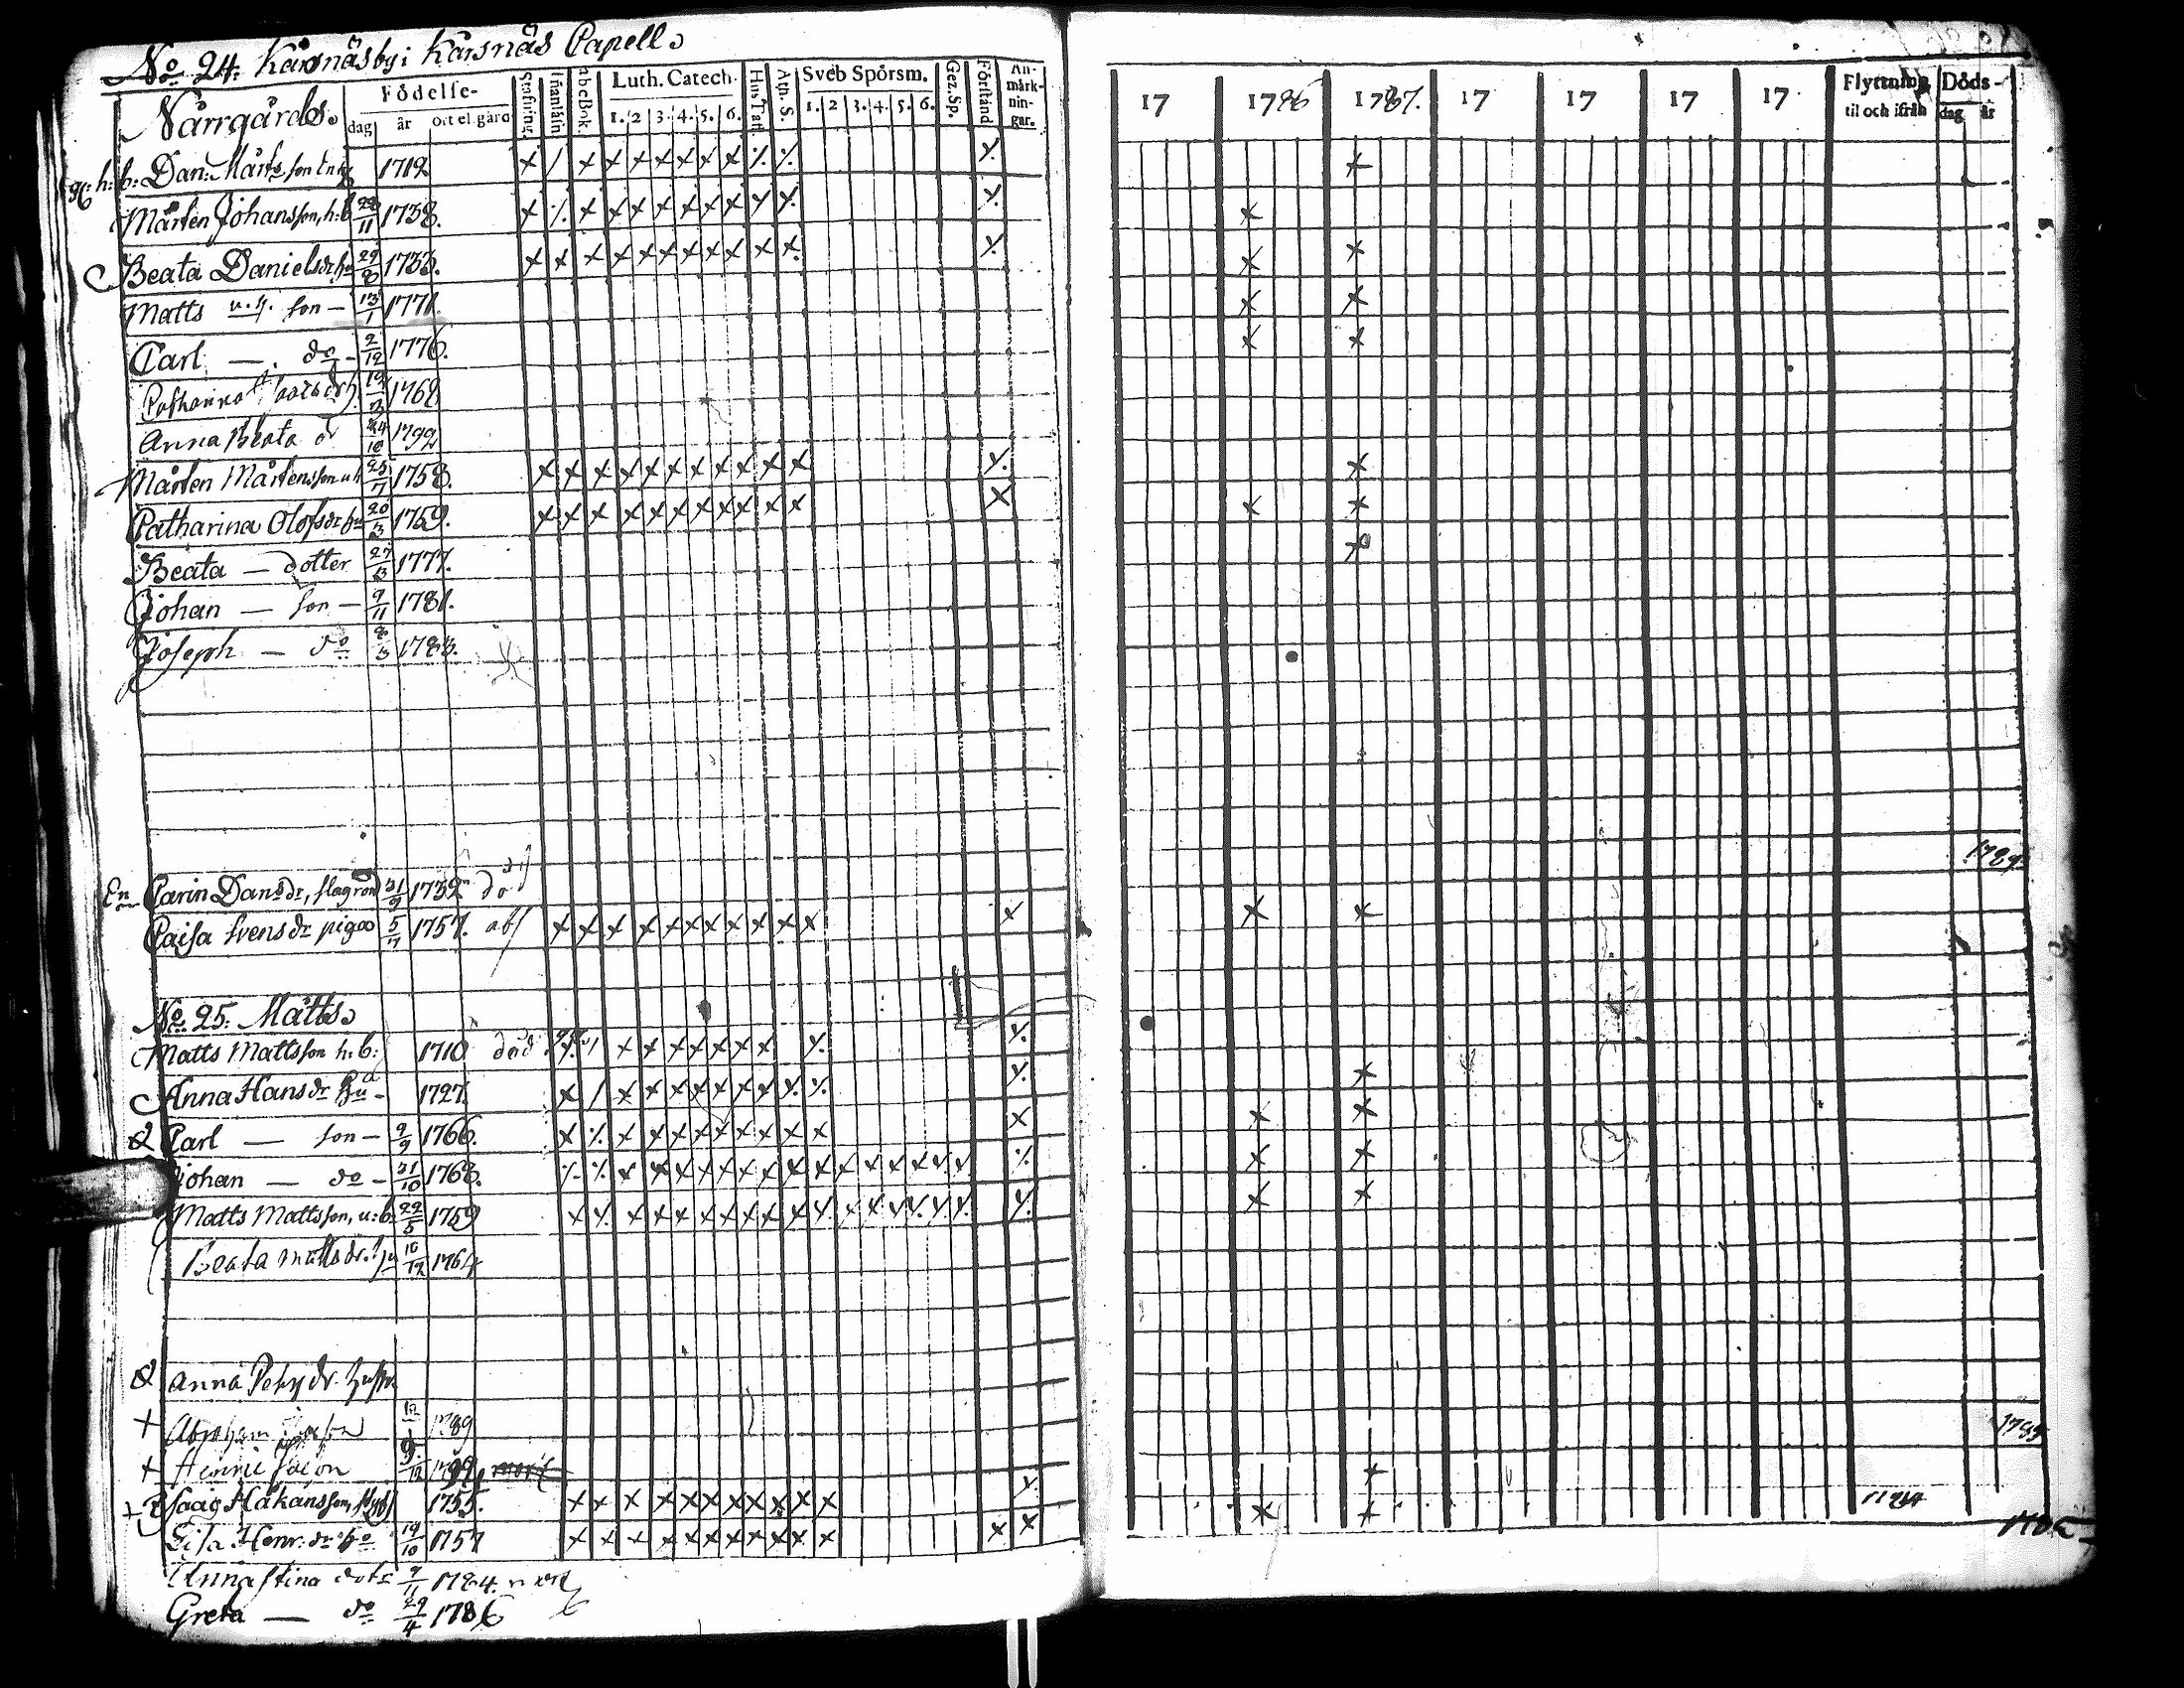 No 24. Kårsnäs by i Kårsnäs Capell
Norrgårds.
Födelse-
dag år ort el. gård
Stafning. Innanläsn abcBok. Luth. Catech. Hus Tafl Ath. S. Sveb Spörsm. Gez. Sp. Förstånd An-märk-nin-gar.
1. 2 3. 4. 5. 6. 1. 2 3. 4. 5. 6.
17 1786 1787. 17 17 17 17 Flyttning til och ifrån Döds- dag år
g: h: b: Dan: Mårts son 1712
Mårten Johansson, h: b 11 1738.
Beata Danielsdr hu 29/8 1733.
Matts u. g. son - 13/1 1771.
Carl - do - 2/12 1776.
1768
Anna Beata 24/10 1792
Mårten Mårtensson u h 25/7 1758.
Catharina Olofsdr hu 20/3 1759.
Beata - dotter 27/3 1777.
Johan - son - 9/11 1781.
Joseph - do 8/3 1783.
1789
En Carin Dansdr, 31/9 1732
Caisa Svensdr piga 5/11 1757. abs
No 25. Matts
Matts Mattsson h: b: 1710 död
Anna Hansdr Hu - 1727.
Carl - son - 2/9 1766.
Johan - do - 31/10 1768.
Matts Mattsson, u: b: 22/5 1759
Beata Mattsdr. hu 16/12 1764
Anna Pehrsdr. hustr
Abraham 1789
Henric 9/12
Isaag Håkansson, 1755.
Lisa Henr: dr ho 19/10 1757
Anna Stina dotr 9/11 1784.
Greta - do 29/4 1786